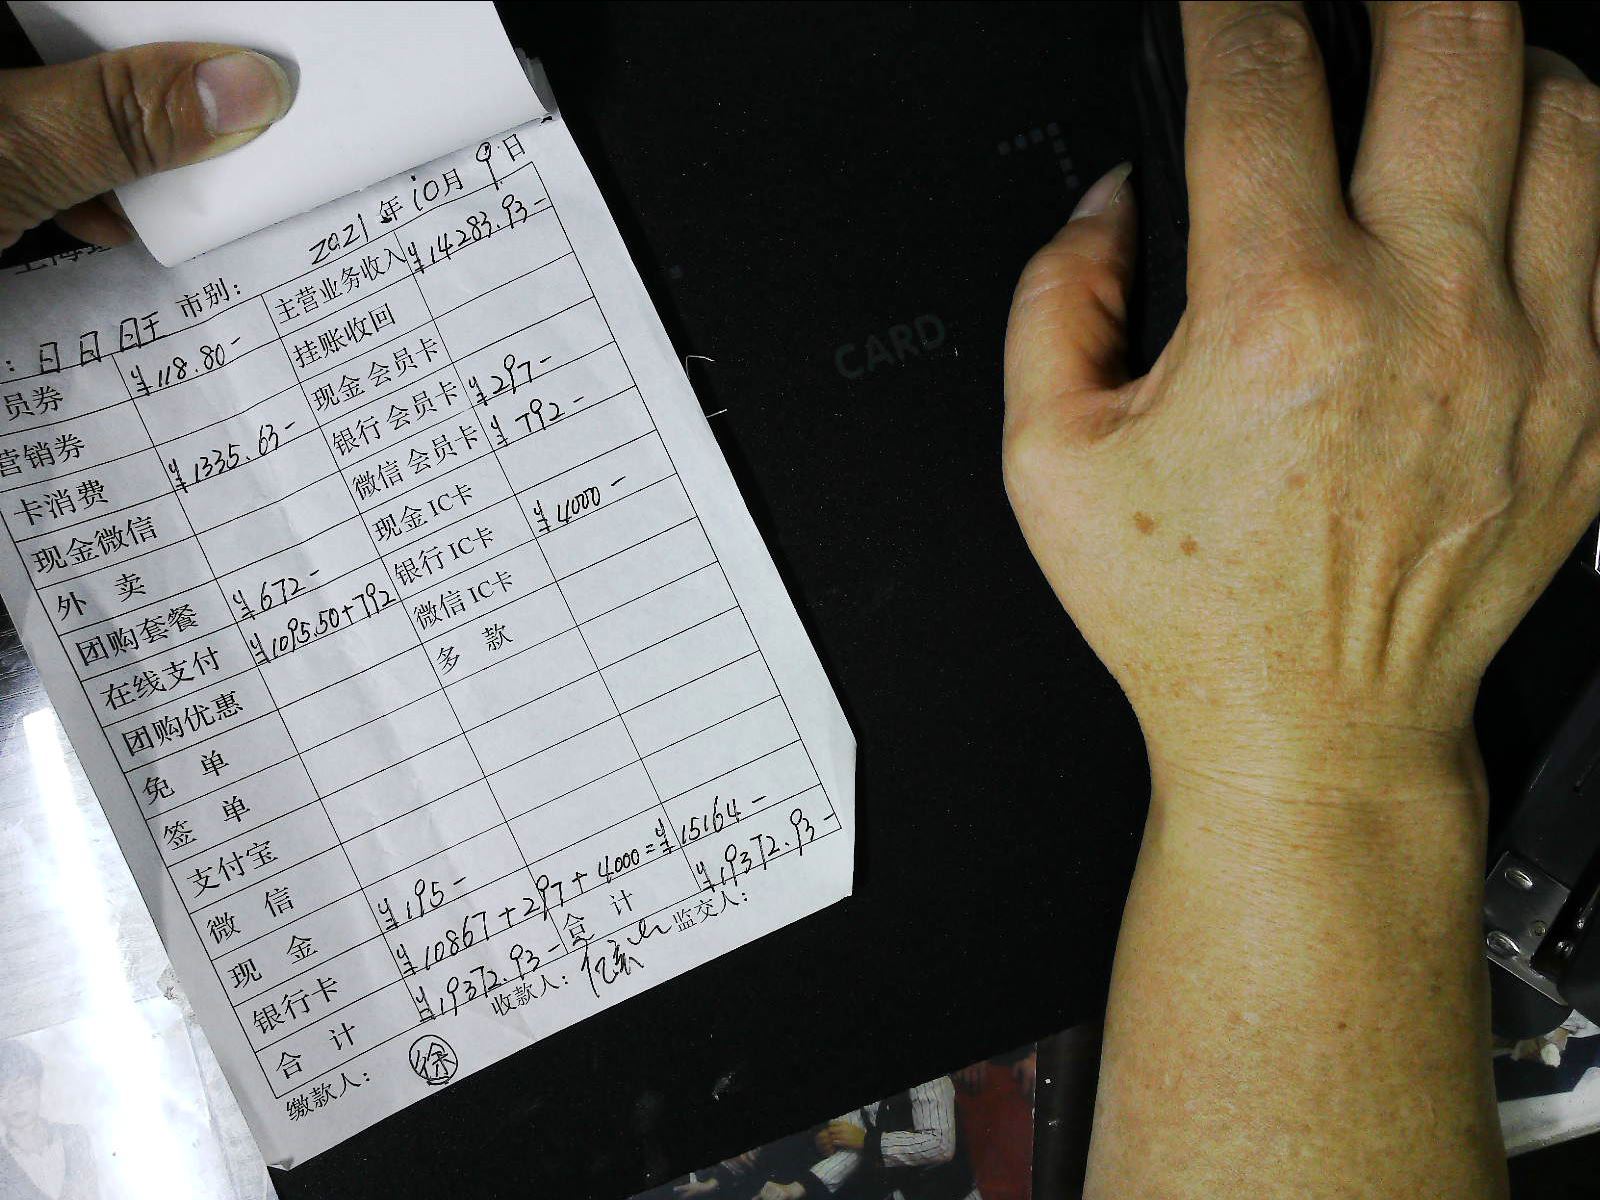 2021年10月9日
市别：
员券 ¥118.80- 主营业务收入 ¥14283.93-
营销券 挂账收回
卡消费 ¥1335.63- 现金会员卡
现金微信 银行会员卡 ¥297-
外卖 微信会员卡 ¥792-
团购套餐 ¥672- 现金IC卡
在线支付 ¥1095.50+792 银行IC卡 ¥4000-
团购优惠 微信IC卡
免单 多款
签单
支付宝
微信 ¥195-
现金
银行卡 ¥10867+297+4000=¥15164-
合计 ¥19372.93- 合计 ¥19372.93-
缴款人： 徐 收款人： 监交人：
CARD